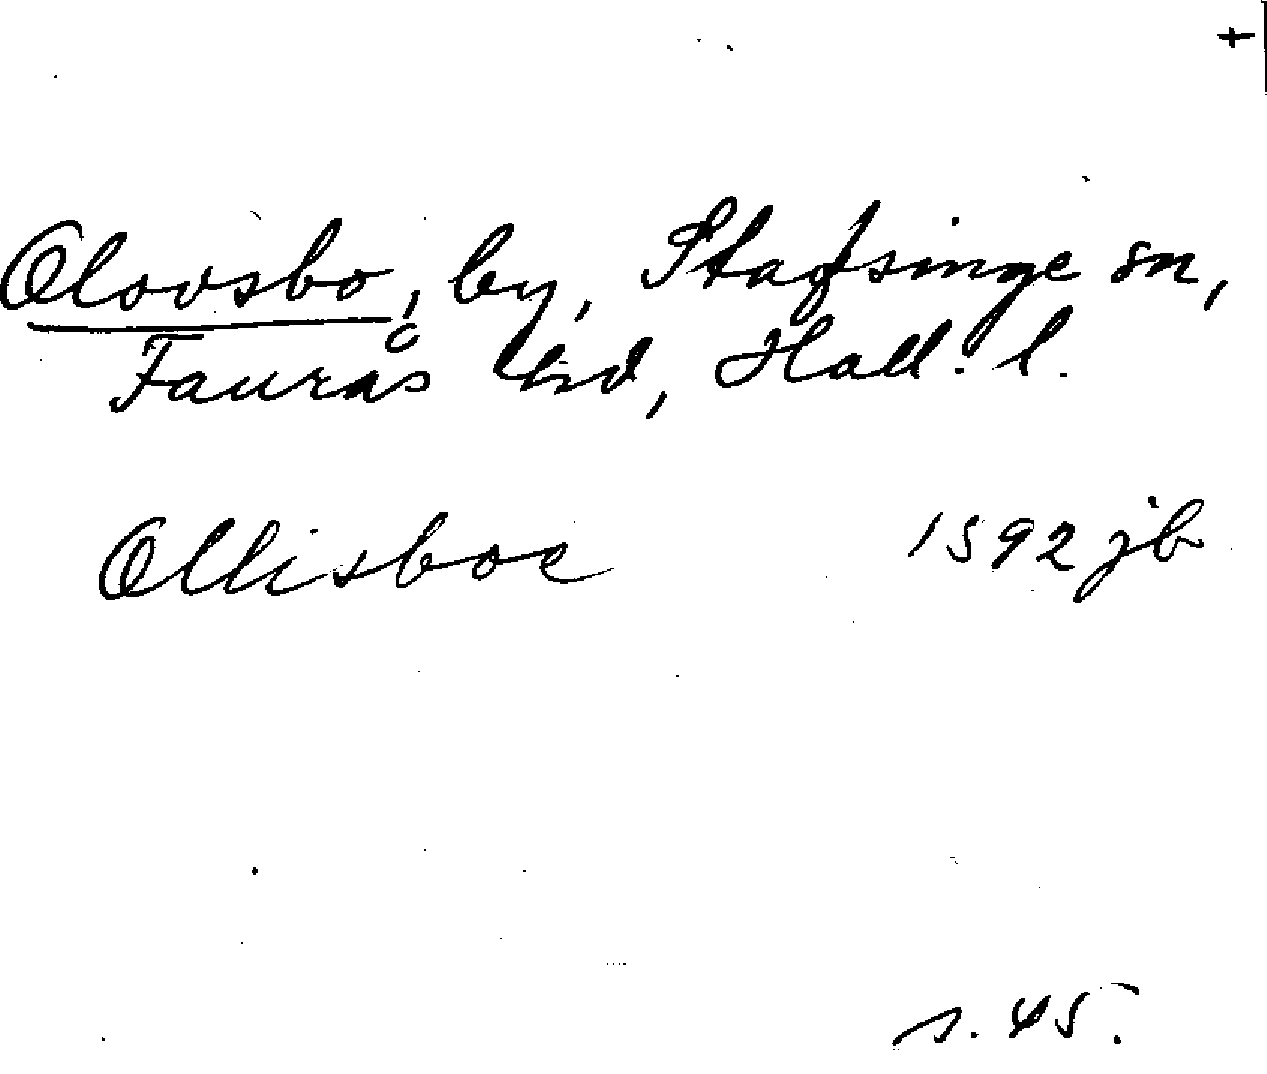 Olovsbo, by, Stafsinge sn,
Faurås hd, Hall. l.
Ollisboe 1592 jb
s. 45.